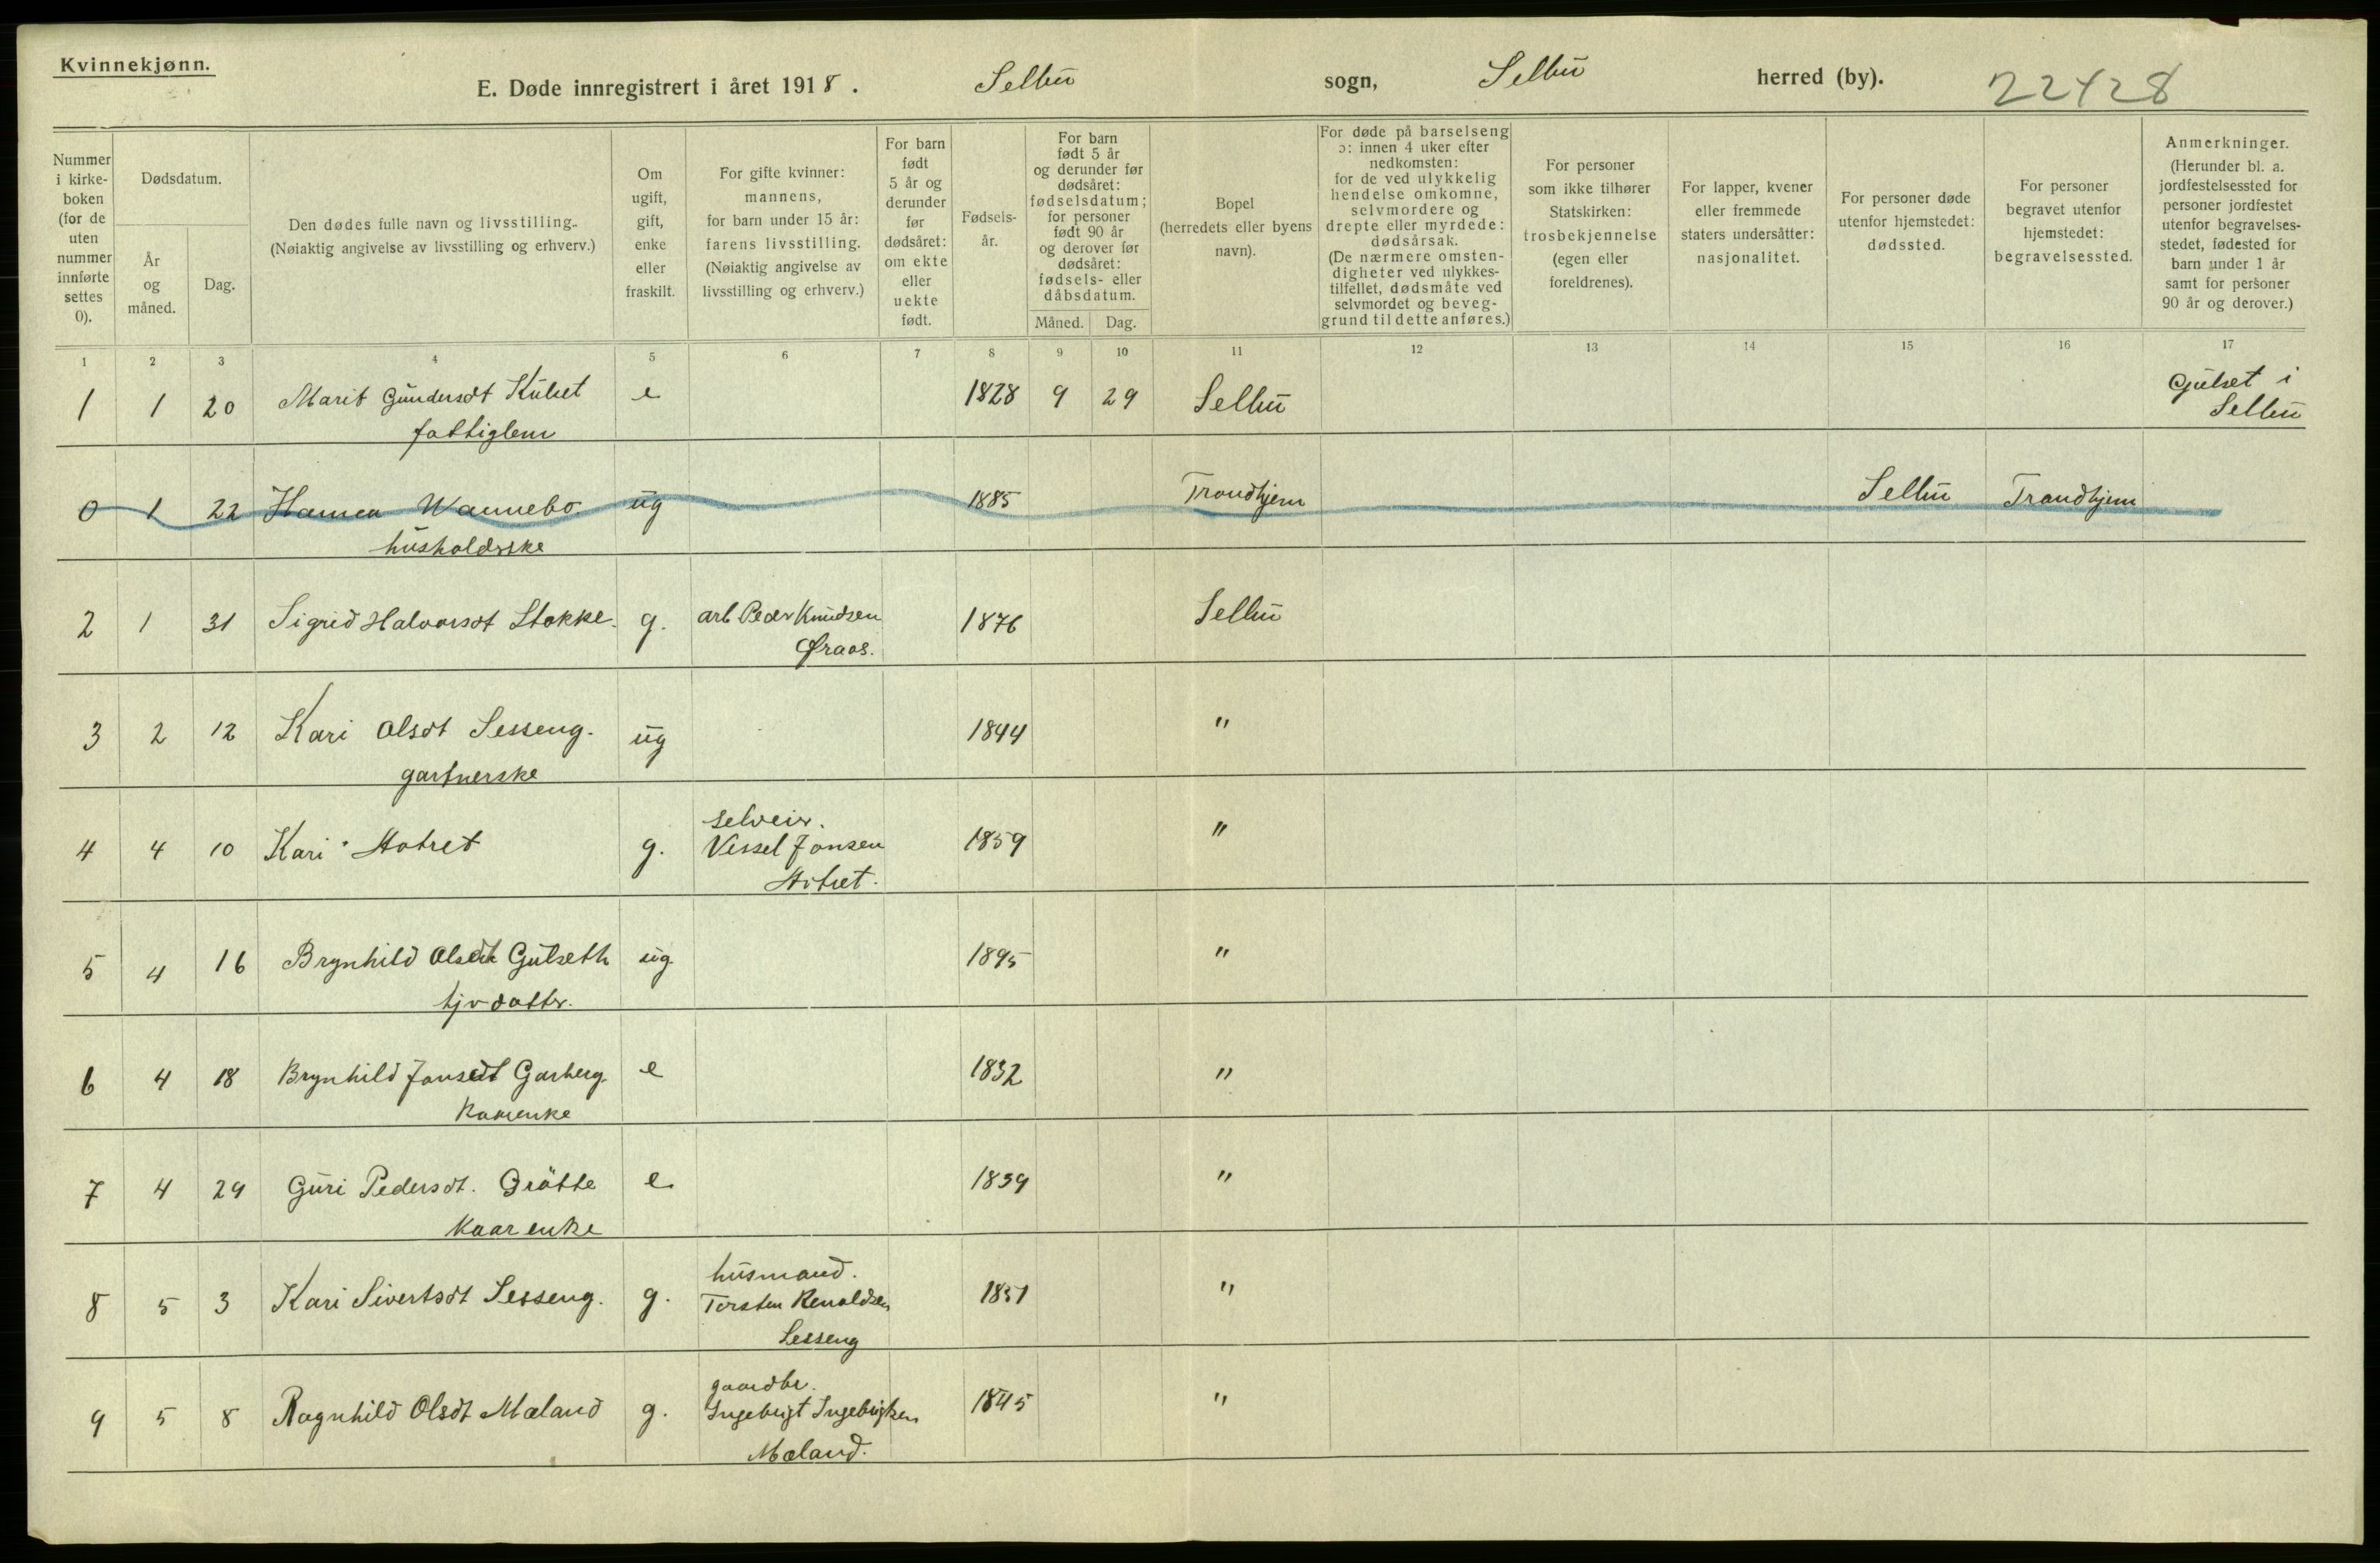 Kvinnekjønn.
E. Døde innregistrert i året 1918. Selbu sogn, Selbu herred (by). 22428
Nummer i kirke-boken (for de uten nummer innførte settes 0).
Dødsdatum.
År og måned.
Dag.
Den dødes fulle navn og livsstilling.
(Nøiaktig angivelse av livsstilling og erhverv.)
Om ugift, gift, enke eller fraskilt.
For gifte kvinner: mannens, for barn under 15 år: farens livsstilling. (Nøiaktig angivelse av livsstilling og erhverv.)
For barn født 5 år og derunder før dødsåret: om ekte eller uekte født.
Fødsels-år.
For barn født 5 år og derunder før dødsåret: fødselsdatum; for personer født 90 år og derover før dødsåret: fødsels- eller dåbsdatum.
Måned. Dag.
Bopel (herredets eller byens navn).
For døde på barselseng ɔ: innen 4 uker efter nedkomsten: for de ved ulykkelig hendelse omkomne, selvmordere og drepte eller myrdede: dødsårsak. (De nærmere omsten-digheter ved ulykkes-tilfellet, dødsmåte ved selvmordet og beveg-grund til dette anføres.)
For personer som ikke tilhører Statskirken: trosbekjennelse (egen eller foreldrenes).
For lapper, kvener eller fremmede staters undersåtter: nasjonalitet.
For personer døde utenfor hjemstedet: dødssted.
For personer begravet utenfor hjemstedet: begravelsessted.
Anmerkninger. (Herunder bl. a. jordfestelsessted for personer jordfestet utenfor begravelses-stedet, fødested for barn under 1 år samt for personer 90 år og derover.)
1 2 3 4 5 6 7 8 9 10 11 12 13 14 15 16 17
1 1 20 Marit Gundersdt Kulset e 1828 9 29 Selbu Gulset i
fattiglem Selbu
0 1 22 Hanna Wannebo. ug 1885 Trondhjem Selbu Trondhjem
husholderske
2 1 31 Sigrid Halvorsdt Stokke. g. arb Peder Knudsen 1876 Selbu
Øraas.
3 2 12 Kari Olsdt Sesseng. ug 1844 "
gartnerske
selveir.
4 4 10 Kari Hotret g. Vessel Jonsen 1859 "
5 4 16 Brynhild Olsdt Gulseth ug 1895 "
6 4 18 Brynhild Jonsdt Garberg. e 1832 "
Kaarenke
7 4 29 Guri Pedersdt. Gråtte e 1839 "
Kaarenke
husmand.
8 5 3 Kari Sivertsdt Sesseng. g. Torsten Renaldsen 1851 "
Sesseng
gaardbr.
9 5 8 Ragnhild Olsdt Mæland g. Ingebrigt Ingebrigtsen 1845 "
Mæland.